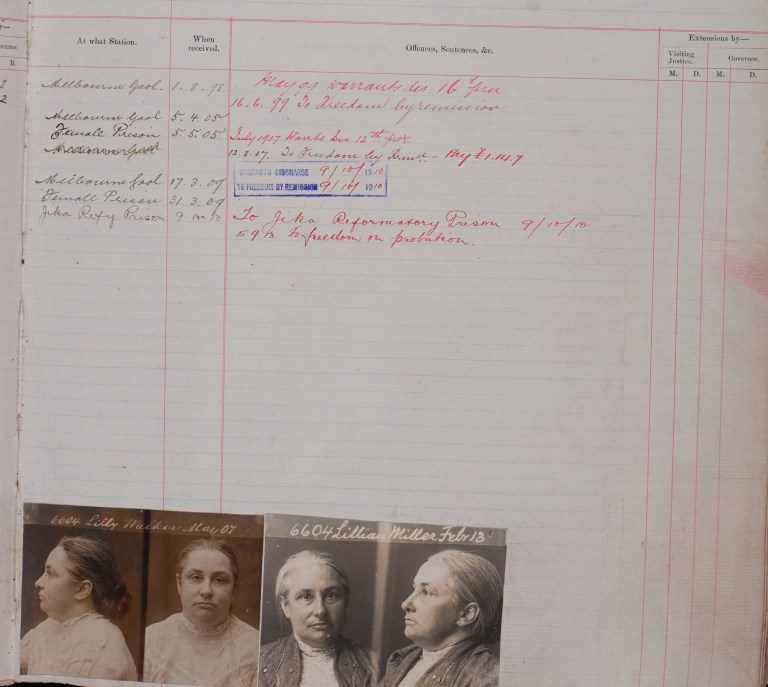 At what Station.
When received.
Offences, Sentences, &c.
Extensions by—
Visiting Justice.
Governor.
M. D. M. D.
D.
2
2
Melbourne Gaol. 1. 8. 98 May 99 Warrants dis. 16th prox
16. 6. 99 To Freedom by remission
Melbourne Gaol 5. 4. 05
Female Prison 5. 5. 05 July 1907 Wants dis 12th prox.
Melbourne Gaol 12. 8. 07. To Freedom by Remn – Pay £1.14.7
WARRANTS DISCHARGE 9/10/1910
TO FREEDOM BY REMISSION 9/10/1910
Melbourne Gaol 17. 3. 09
Female Prison 31. 3. 09
Jika Refy Prison 9. 10. 10 To Jika Reformatory Prison 9/10/10
5 9 13 To freedom on probation.
6604 Lilly Walker May 07
6604 Lillian Miller Feb 13